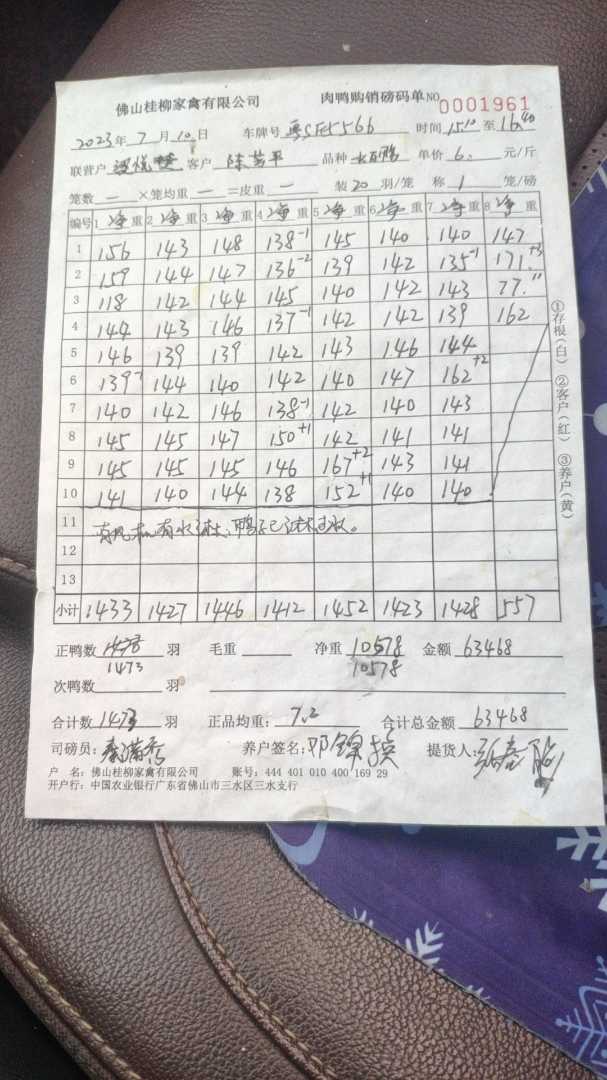 佛山桂柳家禽有限公司 肉鸭购销磅码单 NO 0001961
2023年7月10日 车牌号 粤SF5566 时间 15:10 至 16:40
联营户 客户 陈芳平 品种 单价 6. 元/斤
笼数 — ×笼均重 — =皮重 — 装 20 羽/笼 称 1 笼/磅
编号 1 净重 2 净重 3 净重 4 净重 5 净重 6 净重 7 净重 8 净重
1 156 143 148 138-1 145 140 140 147
2 159 144 147 136-2 139 142 135-1 171+3
3 118 142 144 145 140 142 143 77.11
4 144 143 146 137-1 142 142 139 162
5 146 139 139 142 143 146 144
6 139- 144 140 142 140 147 162+2
7 140 142 146 138-1 142 140 143
8 145 145 147 150+1 142 141 141
9 145 145 145 146 167+2 143 141
10 141 140 144 138 152+1 140 140
11 有风机,有水
12
13
小计 1433 1427 1446 1412 1452 1423 1428 557
正鸭数 羽 毛重 净重 10578 金额 63468
1473 10578
次鸭数 羽
合计数 1473 羽 正品均重: 7.2 合计总金额 63468
司磅员: 养户签名: 邓锦 提货人:
户 名: 佛山桂柳家禽有限公司 账号: 444 401 010 400 169 29
开户行: 中国农业银行广东省佛山市三水区三水支行
①存根(白) ②客户(红) ③养户(黄)